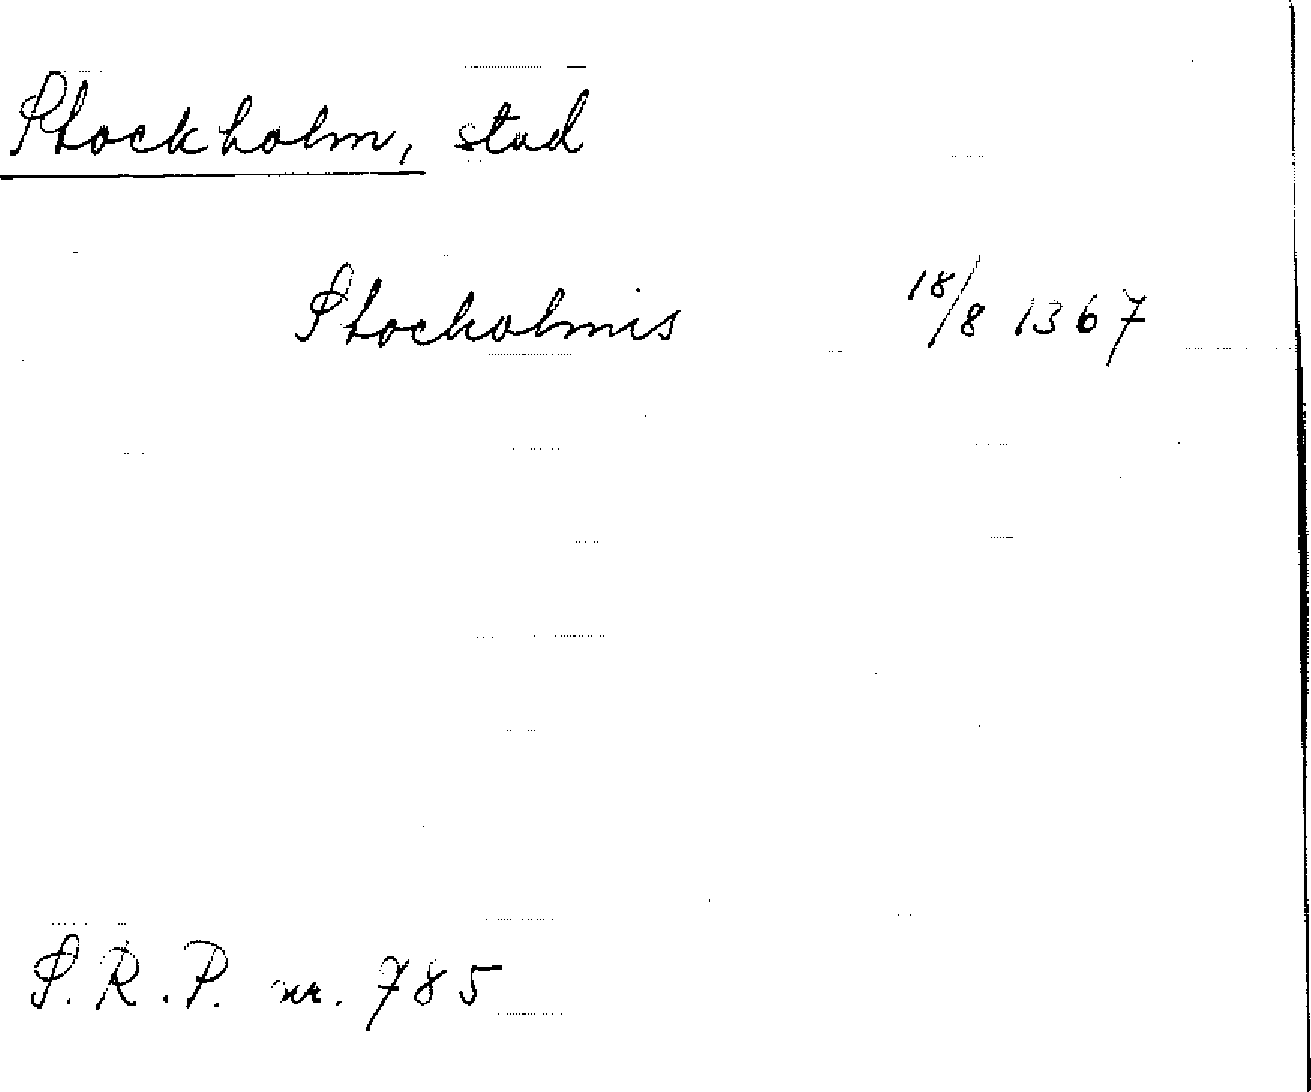 Stockholm, stad
Stocholmis 18/8 1367
S.R.P. nr. 785